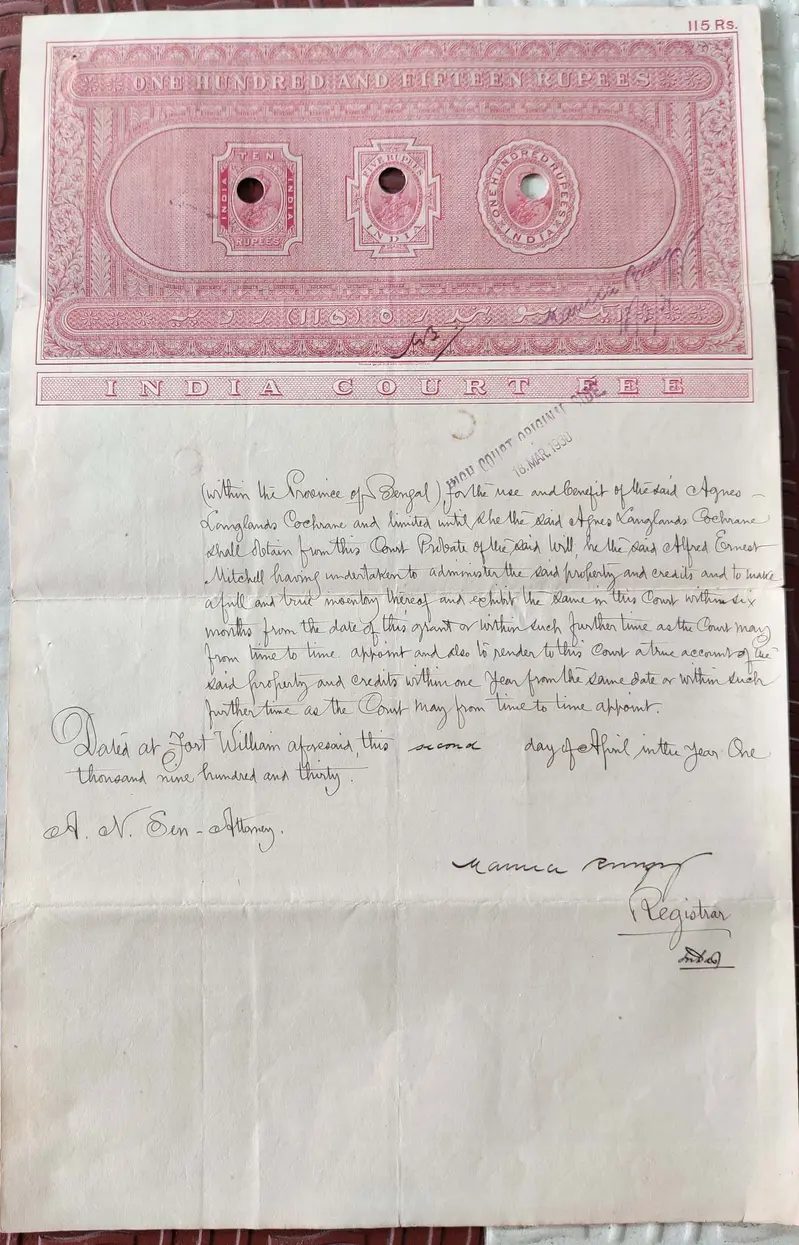 115 Rs.
ONE HUNDRED AND FIFTEEN RUPEES
TEN
INDIA
INDIA
RUPEES
FIVE RUPEES
INDIA
ONE HUNDRED RUPEES
INDIA
(۱۱۵)
INDIA COURT FEE
HIGH COURT ORIGINAL SIDE
18. MAR. 1930
(within the Province of Bengal) for the use and benefit of the said Agnes
Langlands Cochrane and limited until she the said Agnes Langlands Cochrane
shall obtain from this Court Probate of the said Will, he the said Alfred Ernest
Mitchell having undertaken to administer the said property and credits and to make
a full and true inventory thereof and exhibit the same in this Court within six
months from the date of this grant or within such further time as the Court may
from time to time appoint and also to render to this Court a true account of the
said property and credits within one Year from the same date or within such
further time as the Court may from time to time appoint.
Dated at Fort William aforesaid, this second day of April in the Year One
thousand nine hundred and thirty.
A. N. Sen - Attorney.
Registrar